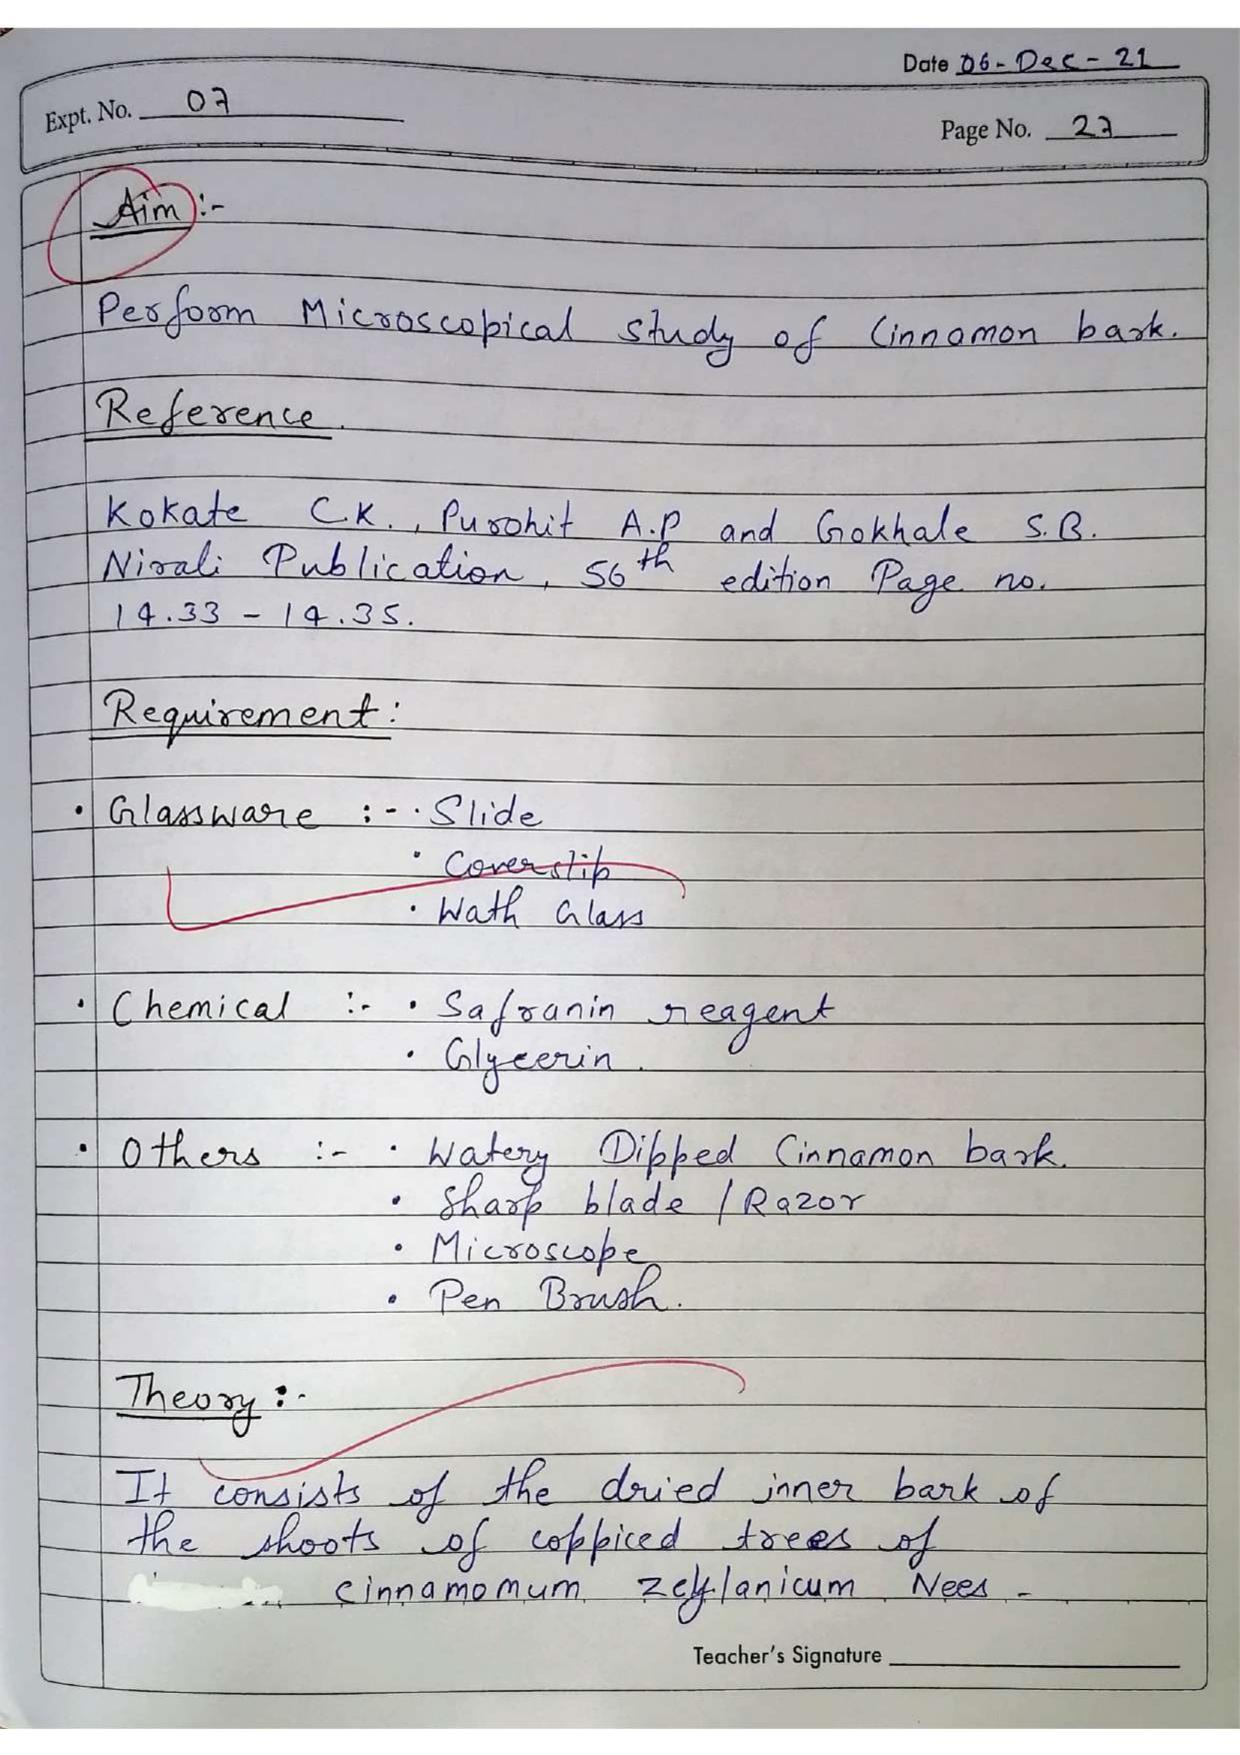 Date 06-Dec-21
Expt. No. 07
Page No. 27
Aim:-
Perform Microscopical study of Cinnamon bark.
Reference
Kokate C.K., Purohit A.P and Gokhale S.B.
Nirali Publication, 56th edition Page no.
14.33 - 14.35.
Requirement:
• Glassware :- · Slide
· Coverslip
· Wath Glass
• Chemical :- • Safranin reagent
· Glycerin.
• Others :- · Watery Dipped Cinnamon bark.
• Sharp blade / Razor
• Microscope
• Pen Brush.
Theory :-
It consists of the dried inner bark of
the shoots of coppiced trees of
cinnamomum zeylanicum Nees -
Teacher's Signature